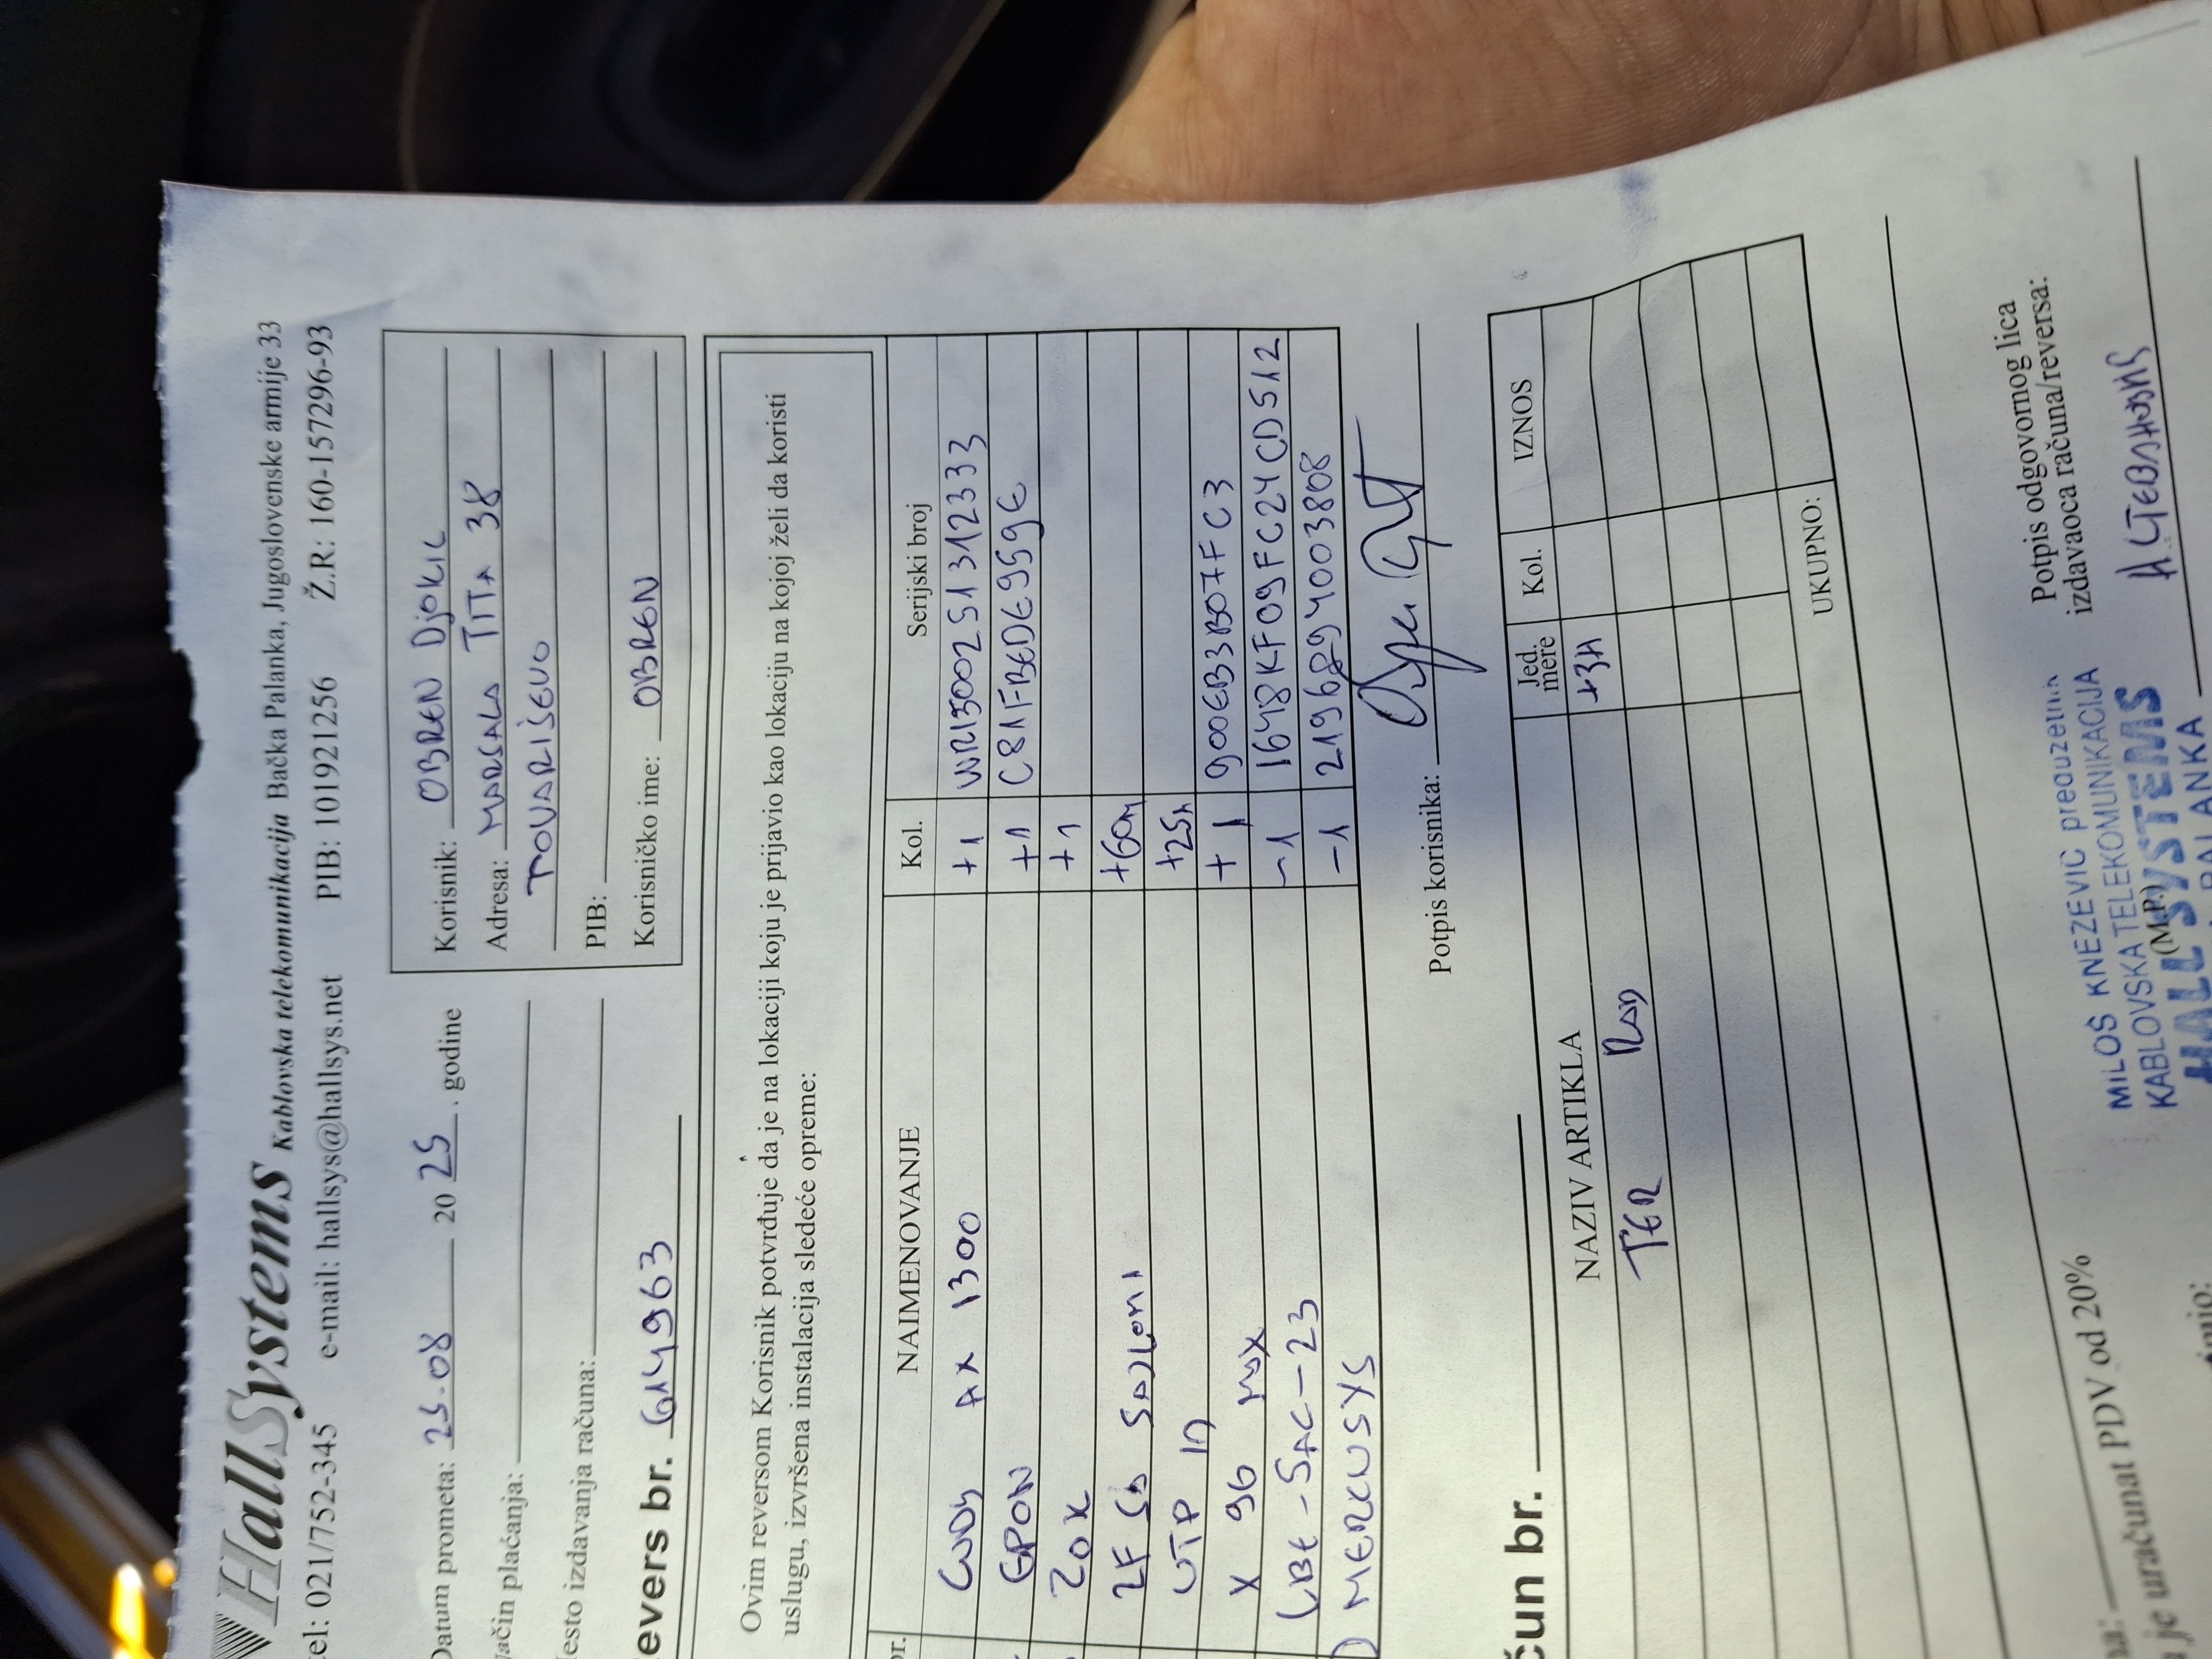 HallSystems Kablovska telekomunikacija Bačka Palanka, Jugoslovenske armije 33
tel: 021/752-345 e-mail: hallsys@hallsys.net PIB: 101921256 Ž.R: 160-157296-93
Datum prometa: 25-08 2025. godine
Način plaćanja:
Mesto izdavanja računa:
Korisnik: OBREN DjOKIC
Adresa: MARSALA TITA 38
TOVARIŠEVO
PIB:
Korisničko ime: OBREN
Revers br. 614963
Ovim reversom Korisnik potvrđuje da je na lokaciji koju je prijavio kao lokaciju na kojoj želi da koristi
uslugu, izvršena instalacija sledeće opreme:
br. NAIMENOVANJE Kol. Serijski broj
CUDY AX 1300 +1 WR1300251312333
GPON +1 C81FBEDE959E
ZOK +1
2F SA SAJLOM +60m
UTP IN +25m
X 96 MAX +1 900EB3B07FC3
LBE-5AC-23 -1 1648KF09FC24CD512
MERCUSYS -1 2196894003808
Potpis korisnika:
Račun br.
NAZIV ARTIKLA Jed. mere Kol. IZNOS
TER RAD +3H
UKUPNO:
je uračunat PDV od 20%
MILOŠ KNEZEVIC preduzetnik
KABLOVSKA TELEKOMUNIKACIJA
HALL SYSTEMS
PALANKA
(M.P.)
Potpis odgovornog lica
izdavaoca računa/reversa: